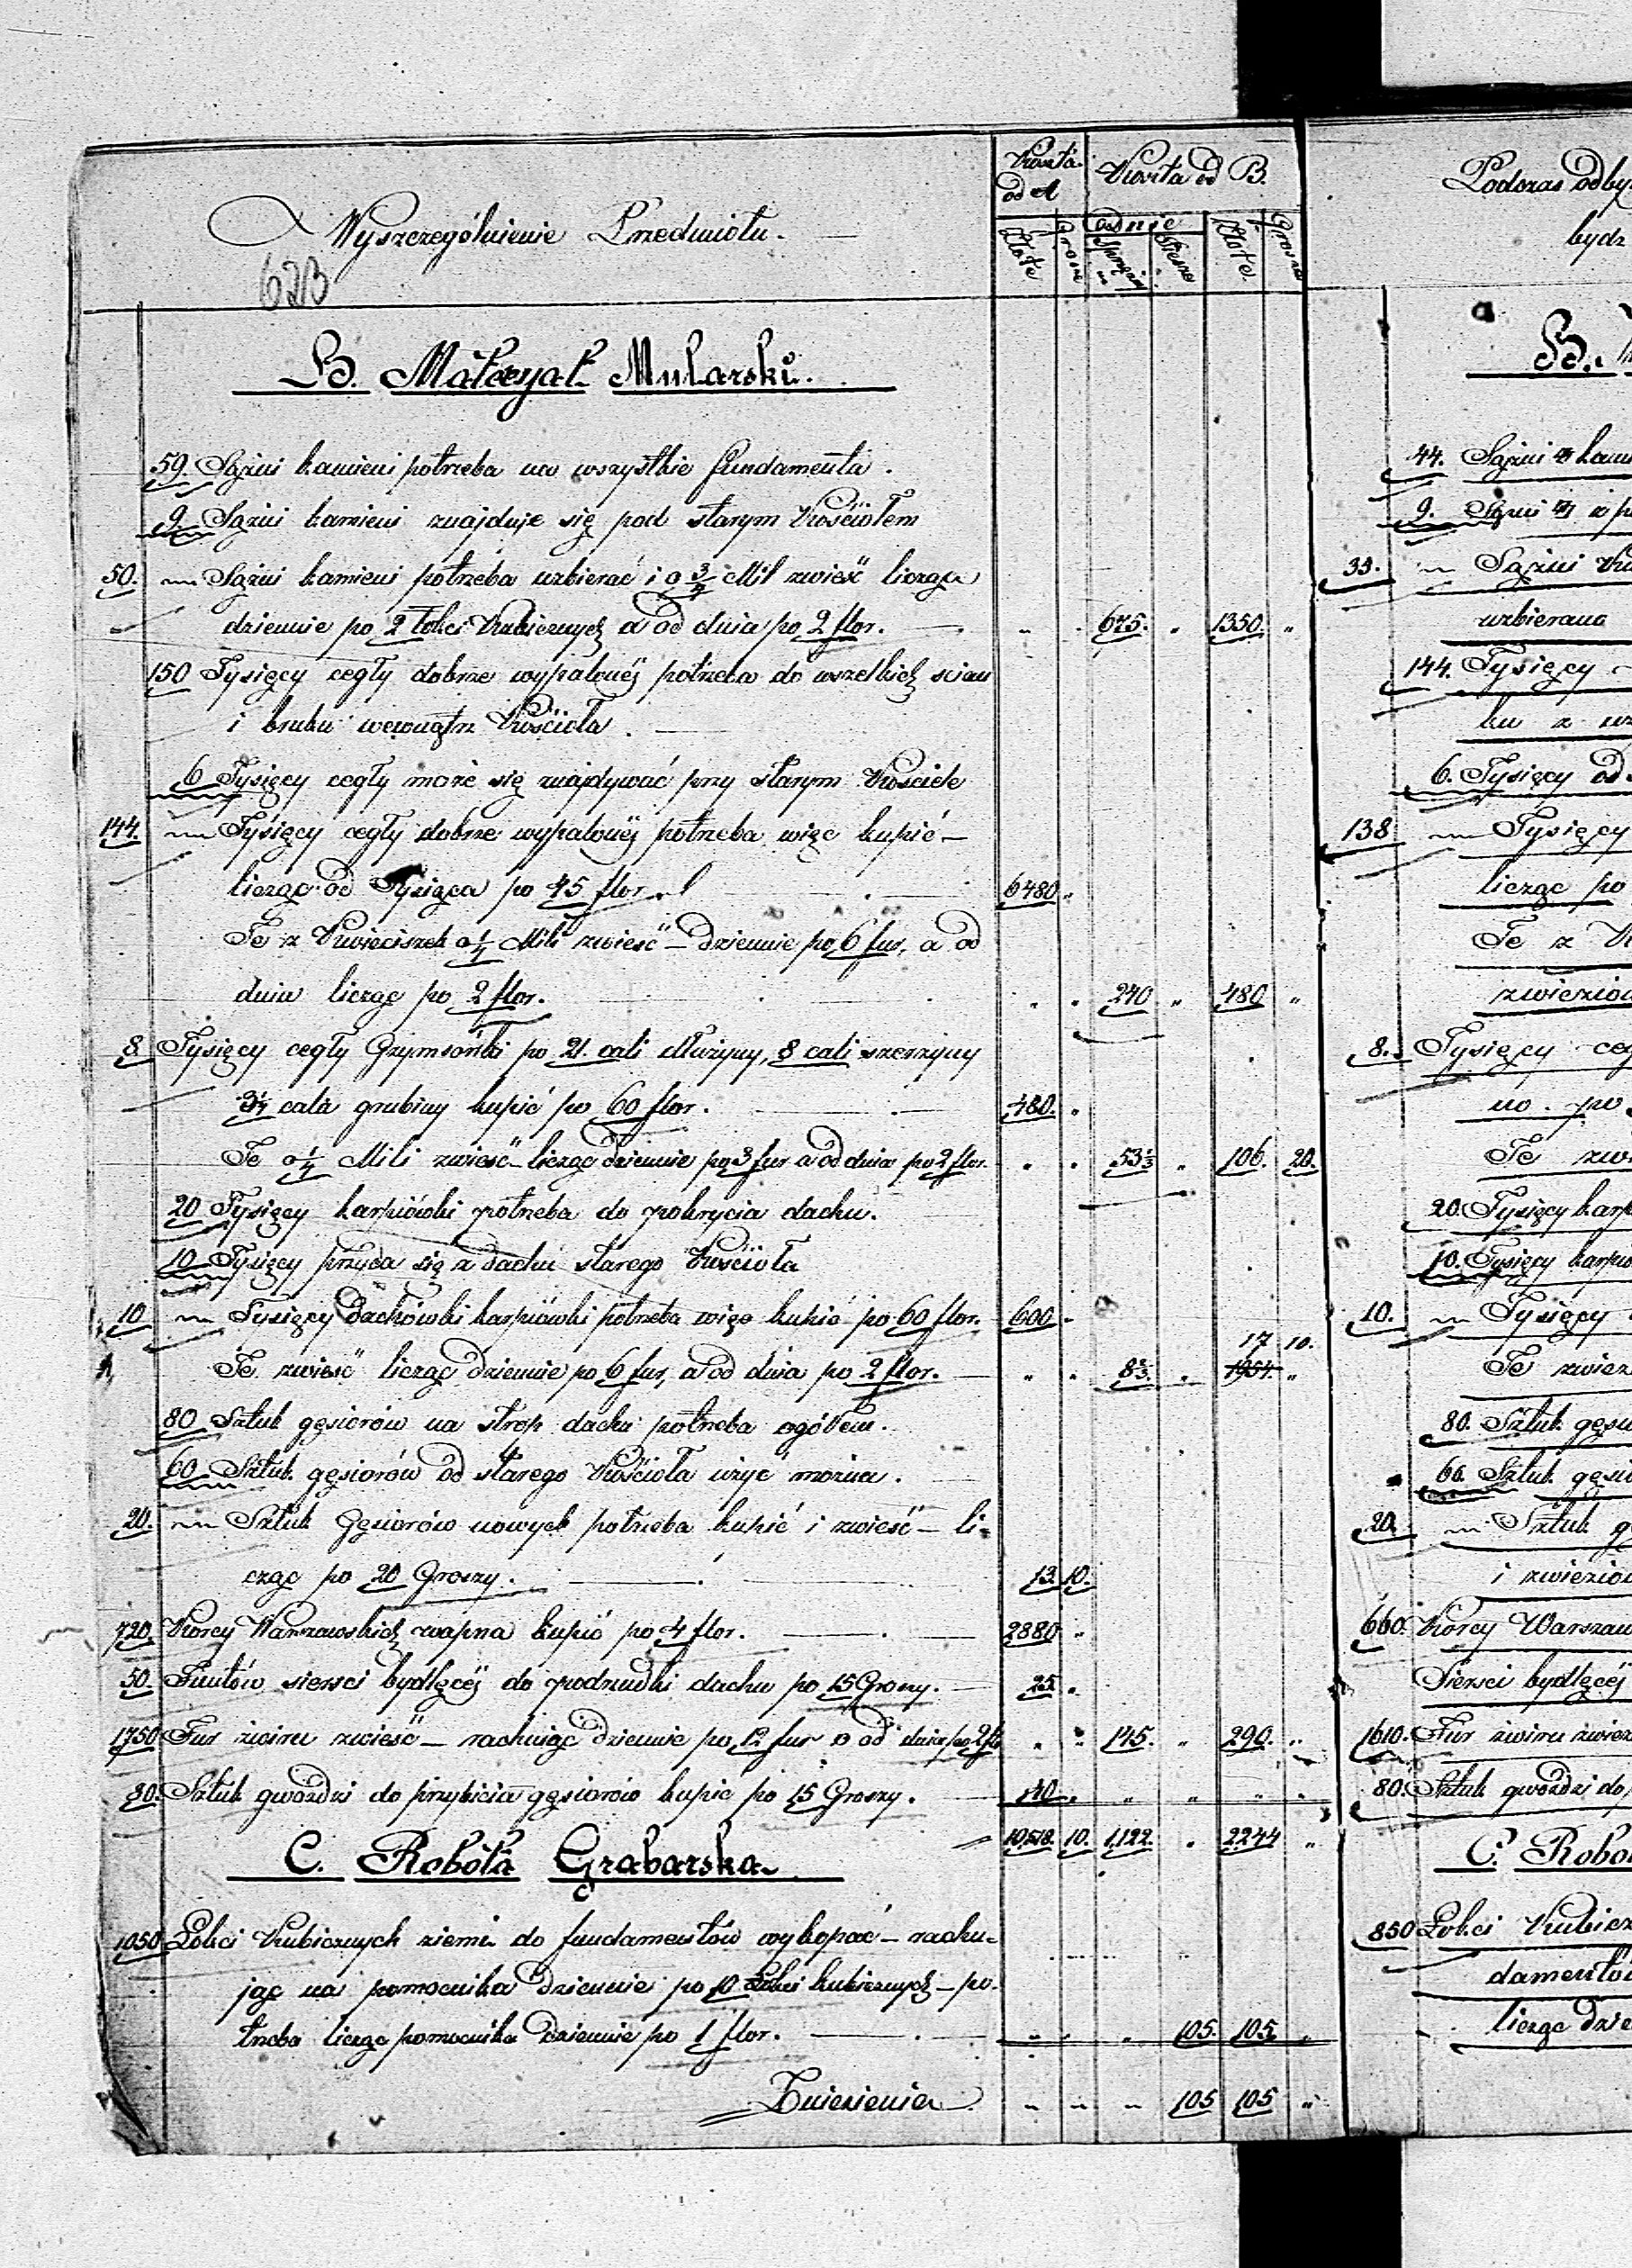 Wyszczególnienie Przedmiotu.
Kwota od A
Kwota od B.
Złote
Grosze
Odnie
Złote
Grosze
623
B. Materyał Mularski.
59. Sążni kamieni potrzeba na wszystkie fundamenta.
9. Sążni kamieni znajduje się pod starym Kościołem
50. Sążni kamieni potrzeba uzbierać i o 3/4 Mil zwieść licząc
dziennie po 2 łokci Kubicznych a od dnia po 2 flor. " " 675. " 1350. "
150 Tysięcy cegły dobrze wypalonéj potrzeba do wszelkich scian
i bruku wewnątrz Kościoła.
6 Tysięcy cegły może się znajdywać przy starym Kościele
144. Tysięcy cegły dobrze wypalonéj potrzeba więc kupić –
licząc od Tysiąca po 45 flor. 6480 "
Te z o 1/4 Mili zwieść – dziennie po 6 fur, a od
dnia licząc po 2 flor. " " 240 " 480 "
8. Tysięcy cegły po 21. cali dłużyny, 8 cali szerzyny
cala grubiny kupić po 60 flor. 480. "
Te o 1/4 Mili zwieść – licząc dziennie po 3 fur a od dnia po 2 flor. " " 53 1/3 " 106. 20.
20 Tysięcy karpiówki potrzeba do pokrycia dachu.
10 Tysięcy przyda się z dachu starego Kościoła
10 Tysięcy Dachówki karpiówki potrzeba więc kupić po 60 flor. 600 "
17 10.
Te zwieść licząc dziennie po 6 fur, a od dnia po 2 flor. " " "
80 Sztuk gęsiorów na strop dachu potrzeba ogółem.
60 Sztuk gęsiorów od starego Kościoła użyć można.
20. Sztuk Gęsiorów nowych potrzeba kupić i zwieść – li-
cząc po 20 Groszy. 13. 10.
720. Korcy Warszawskich wapna kupić po 4 flor. 2880 "
50. Funtów siersci bydlęcéj do dachu po 15 Groszy. 25 "
1750 Fur żwiru zwieść – rachując dziennie po 12 fur a od dnia po 2 fl " " 145. " 290. "
80. Sztuk gwoździ do przybicia gęsiorów kupić po 15 Groszy. 40 " " " " "
10,518. 10. 1,122. " 2244 "
C. Robota Grabarska
1050 Łokci Kubicznych ziemi do fundamentów wykopać – rachu-
jąc na pomocnika dziennie po 10 łokci kubicznych – po-
trzeba licząc pomocnika dziennie po 1 flor. " " " 105. 105. "
Zniesienie " " " 105 105 "
Podczas odby
bydz
B.
44. Sążni
9. Sążni
Sążni
uzbierana
144. Tysięcy
ku z
6. Tysięcy od
138 Tysięcy
licząc po
Te z
8. Tysięcy
no. po
Te
20. Tysięcy
10. Tysięcy
10. Tysięcy
Te
80. Sztuk
60. Sztuk
20. Sztuk
i
660. Korcy
Siersci bydlęcéj
1610. Fur żwiru
80. Sztuk gwoździ do
C.
850 Łokci
licząc